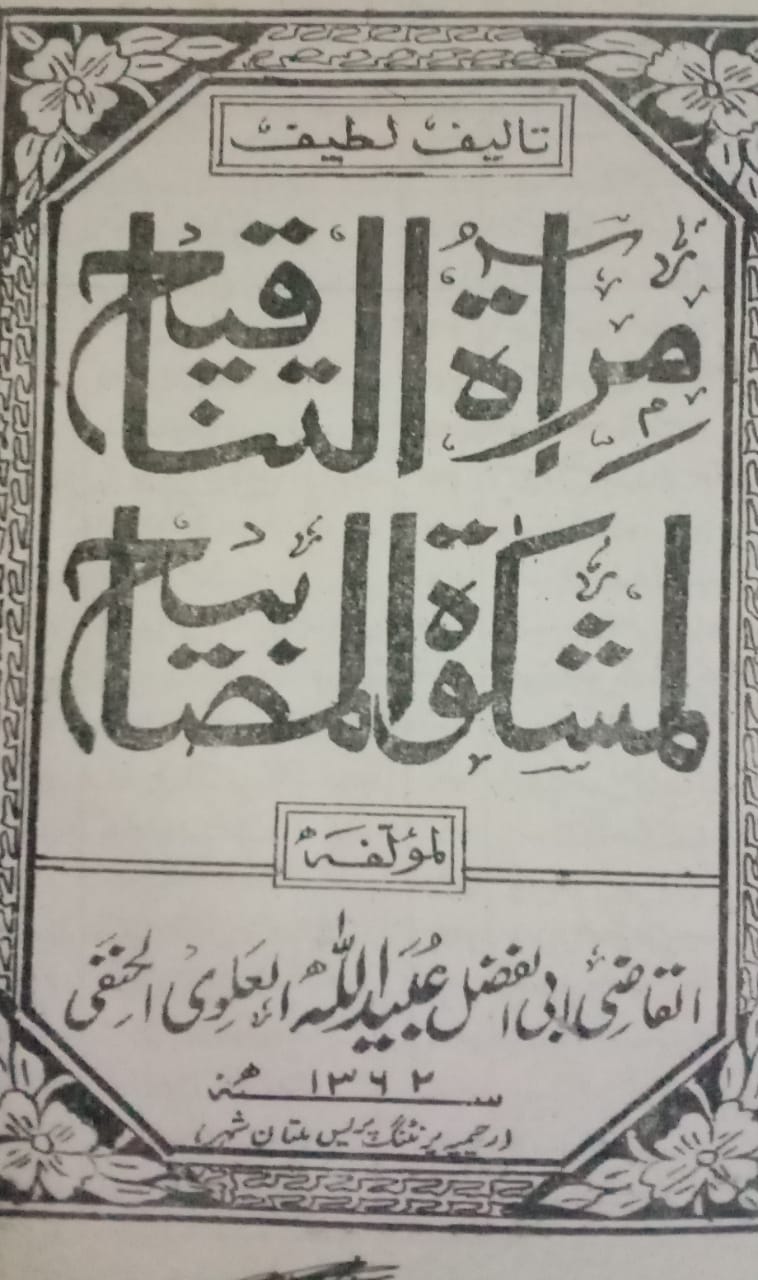 تالیف لطیف
مرآة التناقیح
لمشکوة المصابیح
لمؤلفہ
القاضی ابی الفضل عبید اللہ العلوی الحنفی
سنہ ۱۳۶۲ ھ
(رحیمیہ پرنٹنگ پریس ملتان شہر)